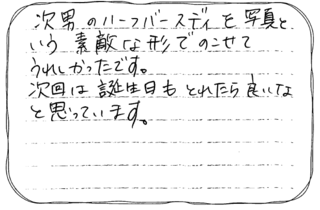 次男のハーフバースディを写真と
いう素敵な形でのこせて
うれしかったです。
次回は誕生日もとれたら良いな
と思っています。